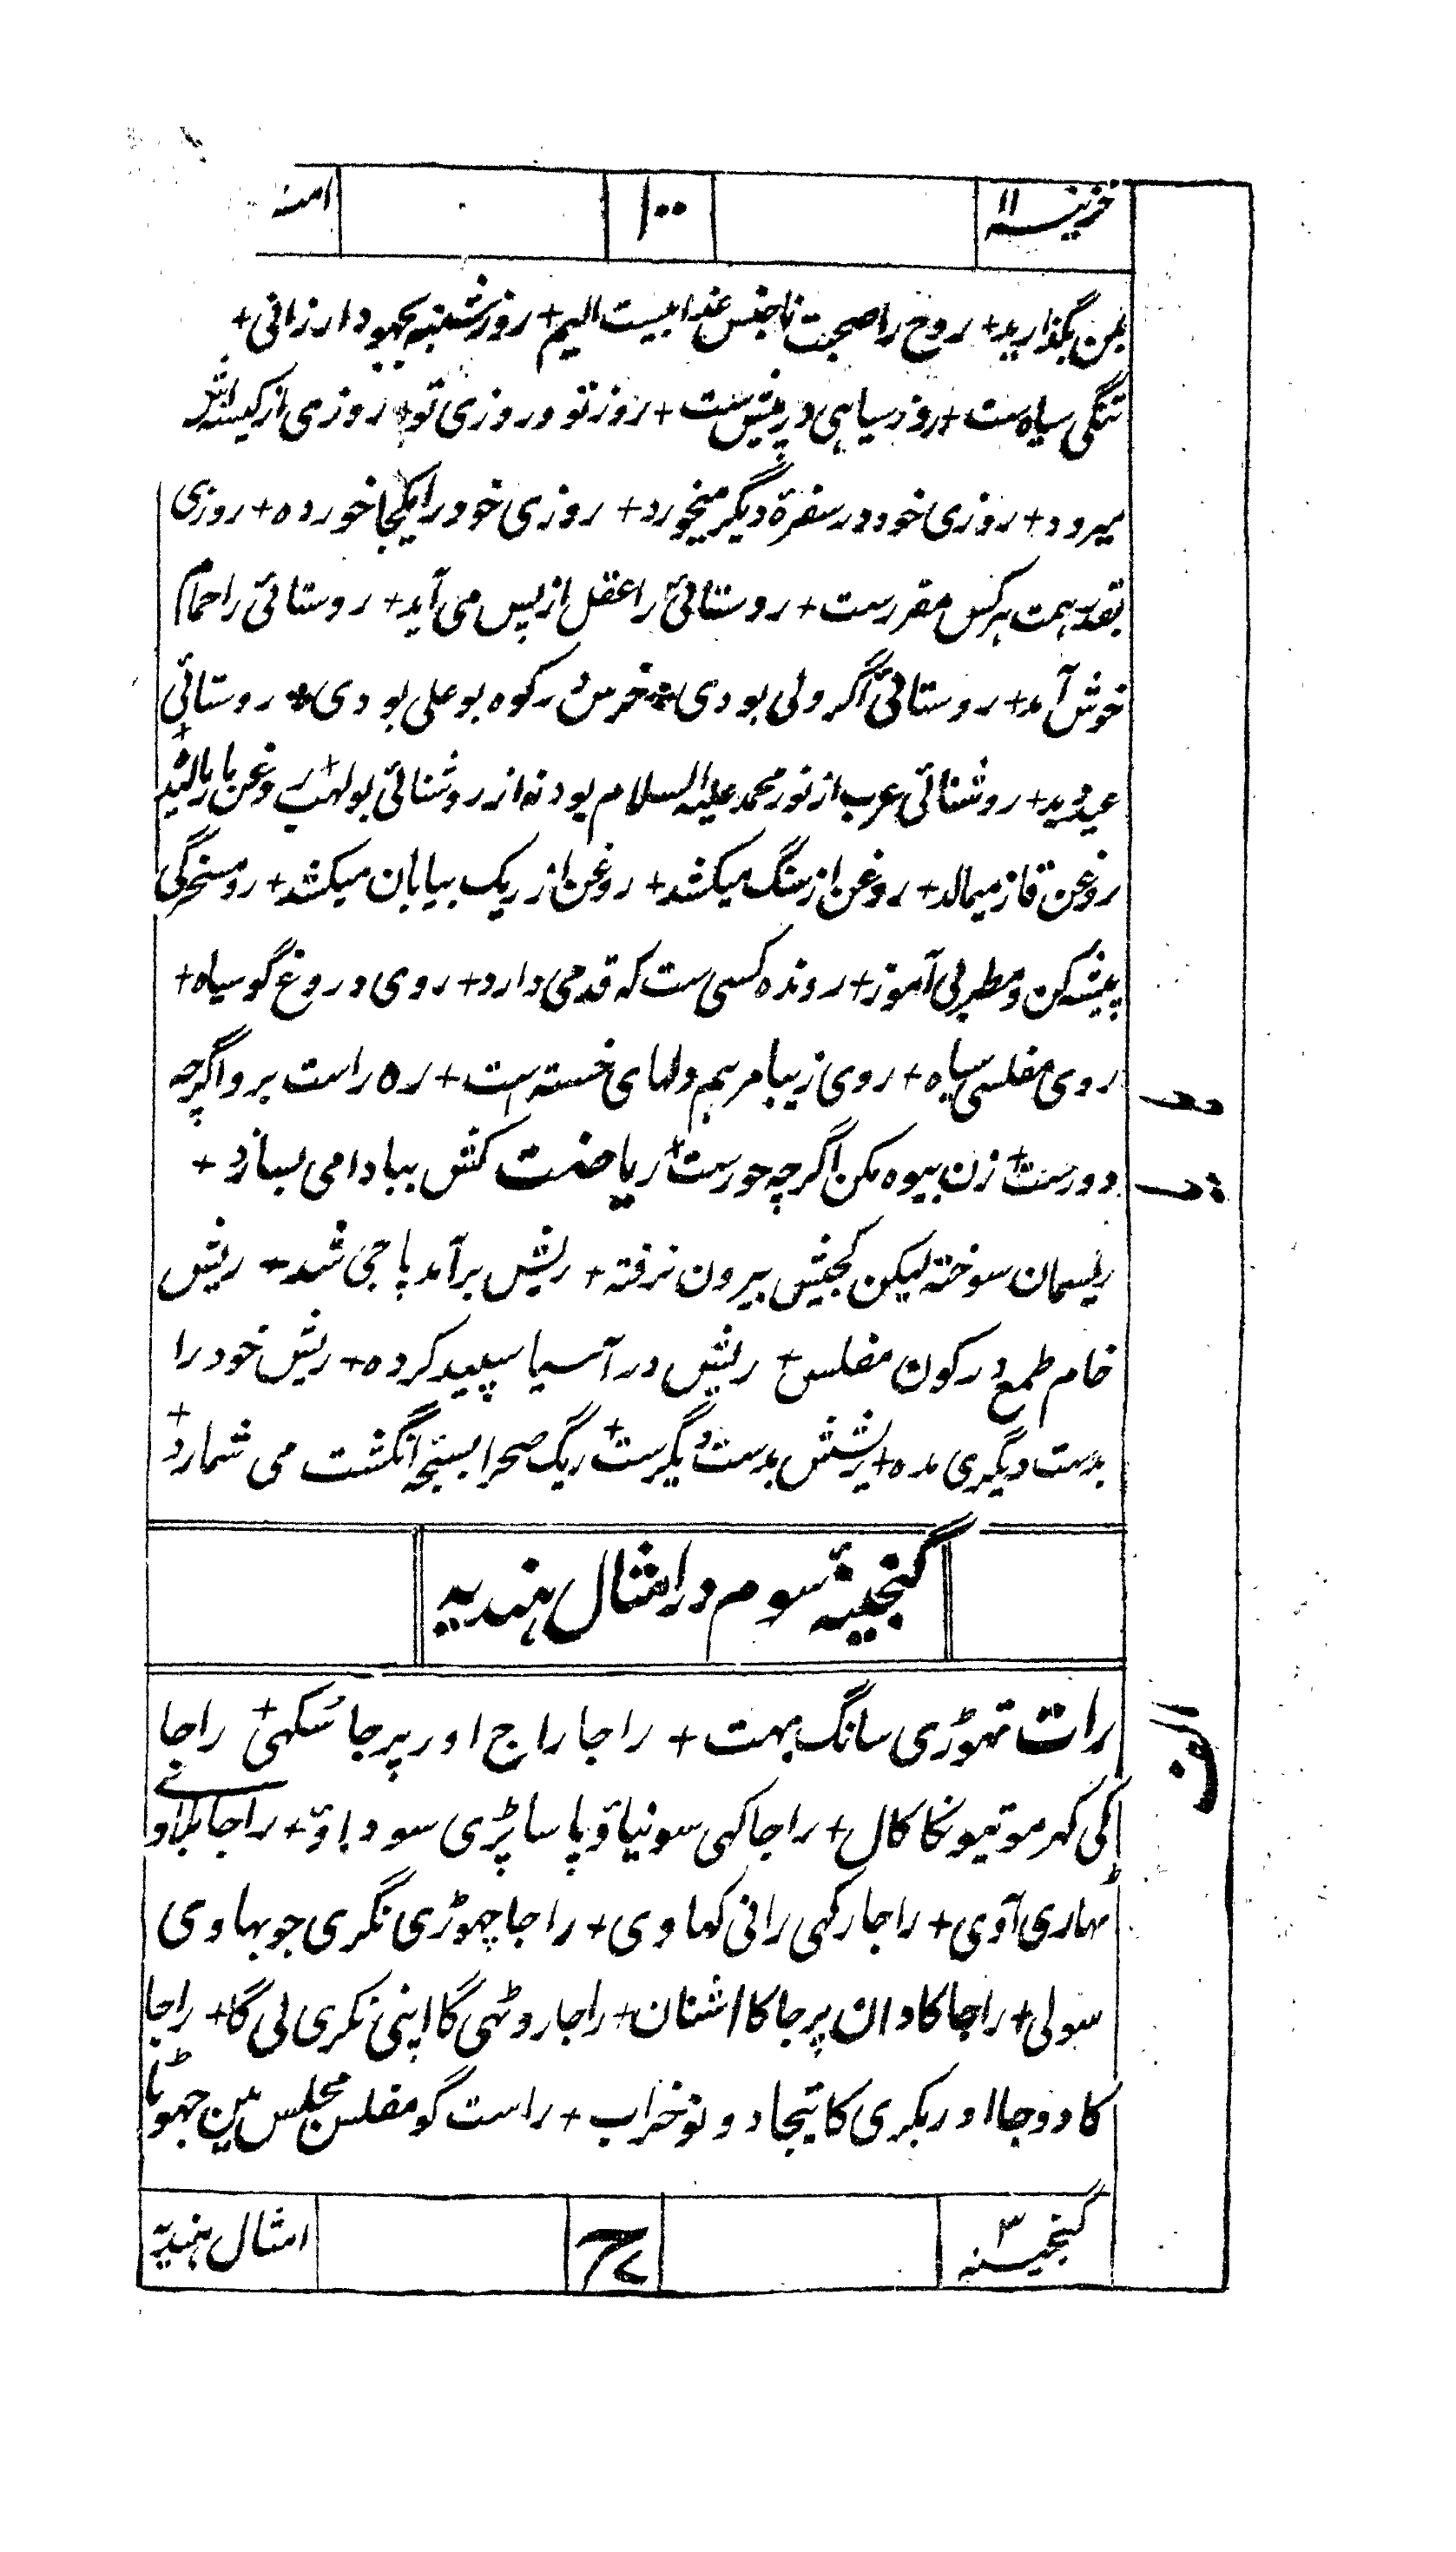 خزینہ ۱۱
۱۰۰
بمن بگذارید + روح را صحبت ناجنس عذابیست الیم + روز شنبه بجهود ارزانی +
تنگی سیاه ست + روز سیاهی در پیش ست + روز نو و روزی نو + روزی از کیسه اش
میرود + روزی خود در سفرۀ دیگر میخورد + روزی خود را یکجا خورده + روزی
بقدر همت هر کس مقررست + روستائی را عقل از پس می آید + روستائی را حمام
خوش آمد + روستائی اگر ولی بودی * خرس در کوه بوعلی بودی * روستائی
عید دید + روشنائی عرب از نور محمد علیه السلام بود نه از روشنائی بولهب + روغن
روغن قاز میمالد + روغن از سنگ میکشد + روغن از ریگ بیابان میکشد + رو مسخرگی
پیشه کن و مطربی آموز + رونده کسی ست که قدمی دارد + روی دروغ گو سیاه +
روی مفلسی سیاه + روی زیبا مرهم دلهای خسته است + ره راست برو اگرچه
دورست + زن بیوه مکن اگرچه حورست + ریاضت کش ببادامی بسازد +
ریسمان سوخته لیکن کجیش بیرون نرفته + ریش برآمد پاجی شد + ریش
خام طمع در کون مفلس + ریش در آسیا سپید کرده + ریش خود را
بدست دیگری مده + ریشش بدست دیگرست + ریگ صحرا بسبحه انگشت می شمارد +
گنجینۂ سوم در امثال ہندیہ
الف
رات تہوڑی سانگ بہت + راجا راج اور پرجا سُکہی + راجا
کی گہر موتیونکا کال + راجا کہی سو نیاؤ پاسا پڑی سو داؤ + راجا بلاوے
ٹہاری آوی + راجا رکہی رانی کہاوی + راجا چہوڑی نگری جو بہاوی
سو لی + راجا کا دان پرجا کا اشنان + راجا روٹہی گا اپنی نگری لی گا + راجا
کا دوجا اور بکری کا تیجا دونو خراب + راست گو مفلس مجلس مین جہوٹا
گنجینہ ۳
امثال ہندیہ